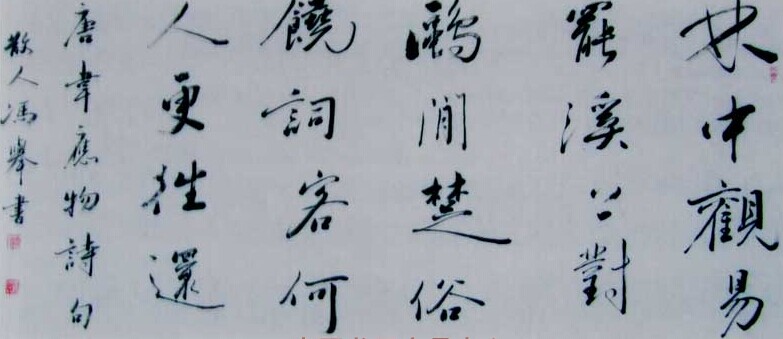 林中觀易
罷溪上對
鷗閒楚俗
饒詞客何
人更往還
唐韋應物詩句
散人馮舉書